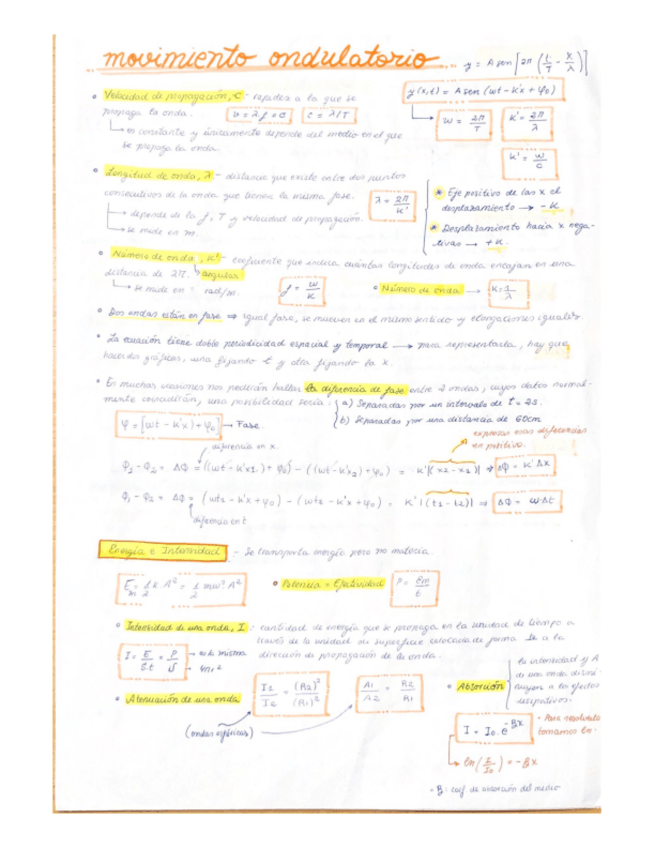 movimiento ondulatorio
y = A sen [2π (t/T - x/λ)]
• Velocidad de propagación, c - rapidez a la que se
propaga la onda. v = λ·f = c  c = λ/T
↳ es constante y únicamente depende del medio en el que
se propaga la onda.
y(x,t) = A sen (wt - k'x + φ0)
w = 2π/T  k' = 2π/λ
k' = w/c
• Longitud de onda, λ - distancia que existe entre dos puntos
consecutivos de la onda que tienen la misma fase. λ = 2π/k'
↳ depende de la f, T y velocidad de propagación.
↳ se mide en m.
* Eje positivo de las x el
desplazamiento → -K.
* Desplazamiento hacia x nega-
tivas → +K.
• Número de onda, k' - coeficiente que indica cuántas longitudes de onda encajan en una
distancia de 2π. ↳ angular
↳ se mide en rad/m. f = w/k • Número de onda → k = 1/λ
• Dos ondas están en fase ⇒ igual fase, se mueven en el mismo sentido y elongaciones iguales.
• La ecuación tiene doble periodicidad espacial y temporal → para representarla, hay que
hacer dos gráficas, una fijando t y otra fijando la x.
• En muchas ocasiones nos pedirán hallar la diferencia de fase entre 2 ondas, cuyos datos normal-
mente coincidirán, una posibilidad sería: a) Separadas por un intervalo de t = 2s.
b) Separadas por una distancia de 60cm
φ = [wt - k'x) + φ0] → Fase.
expresar esas diferencias
en positivo.
diferencia en x.
φ1 - φ2 = Δφ = ((wt - k'x1) + φ0) - ((wt - k'x2) + φ0) = k'|(x2 - x1)| ⇒ Δφ = k'Δx
φ1 - φ2 = Δφ = (wt1 - k'x + φ0) - (wt2 - k'x + φ0) = k'|(t1 - t2)| ⇒ Δφ = w·Δt
diferencia en t
Energía e Intensidad - Se transporta energía pero no materia.
Em = 1/2 k A² = 1/2 mw²A² • Potencia = Efectividad P = Em/t
• Intensidad de una onda, I : cantidad de energía que se propaga en la unidad de tiempo a
través de la unidad de superficie colocada de forma ⊥ a la
dirección de propagación de la onda.
I = E/S·t = P/S → es la misma
→ 4πr²
• Atenuación de una onda I1/I2 = (R2)²/(R1)²  A1/A2 = R2/R1
(ondas esféricas)
• Absorción
la intensidad y A
de una onda dismi-
nuyen a los efectos
disipativos.
I = I0·e^-βx
- Para resolverlo
tomamos ln-
↳ ln(I/I0) = -βx
- β: coef de absorción del medio